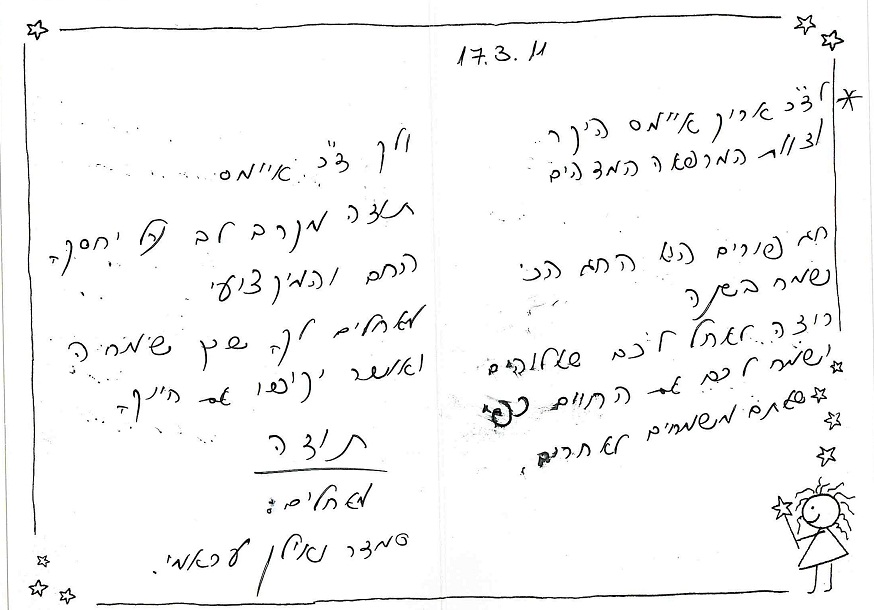 17.3.11
לד"ר אריק איימס היקר
וצוות המרפאה המדהים
חג פורים הוא החג הכי
שמח בשנה
רוצה לאחל לכם שאלוהים
ישמח לכם את החיים כפי
שאתם משמחים לאחרים.
ולך ד"ר איימס
תודה מקרב לב על יחסך
החם והמקצועי
מאחלים לך שרק שמחה
ואושר יקיפו את חייך
תודה
מאחלים:
סמדר ואילן עראמי.